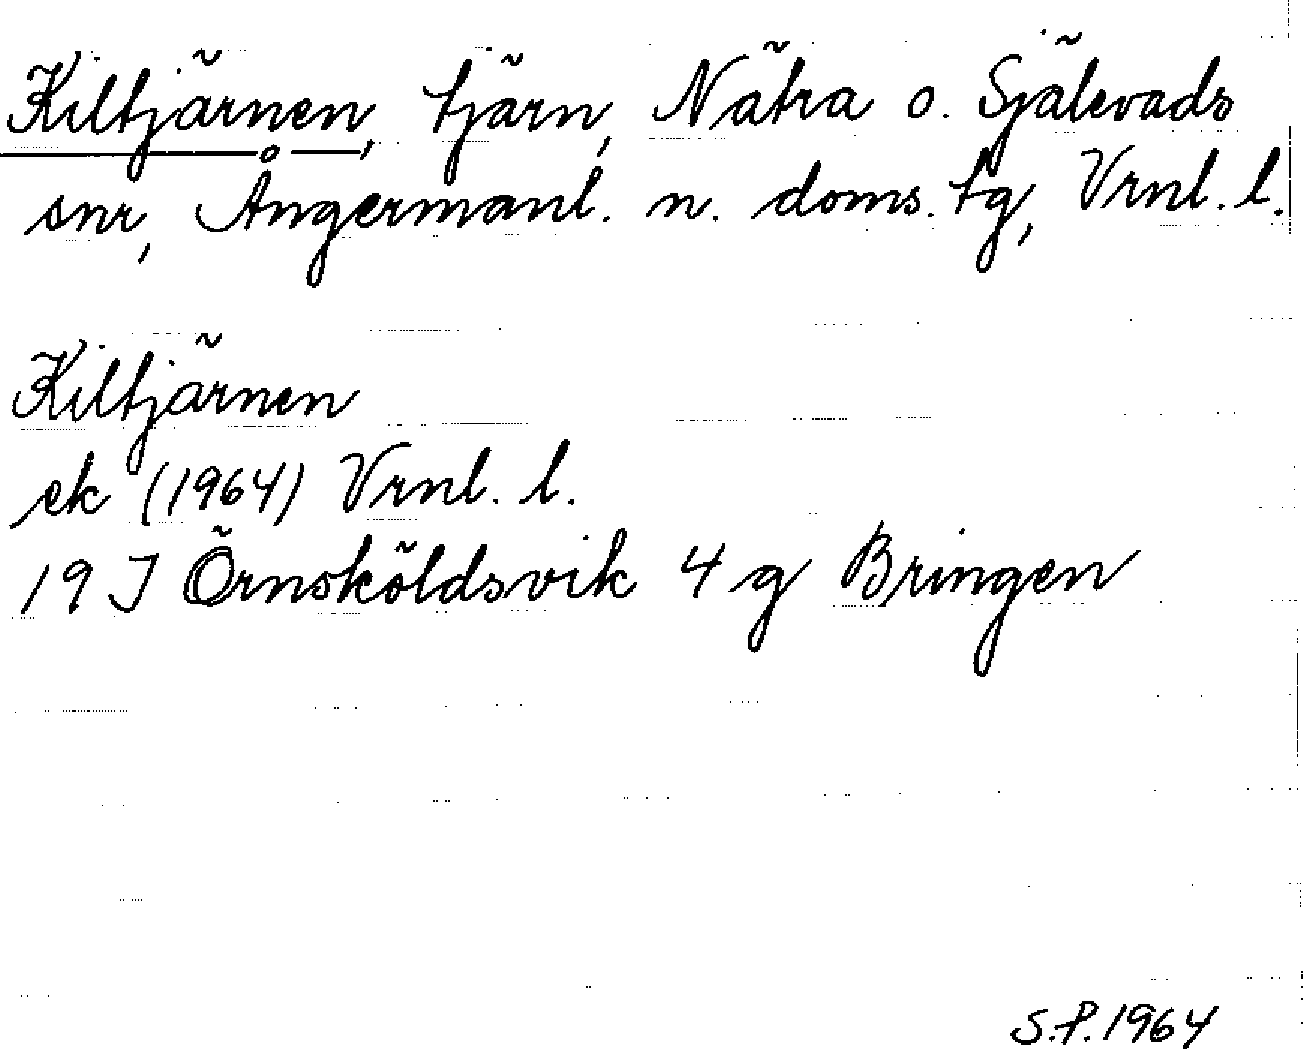 Kiltjärnen, tjärn, Nätra o. Själevads
snr, Ångermanl. n. doms. tg, Vrnl. l.
Kiltjärnen
ek (1964) Vrnl. l.
19 J Örnsköldsvik 4 g Bringen
S.P. 1964